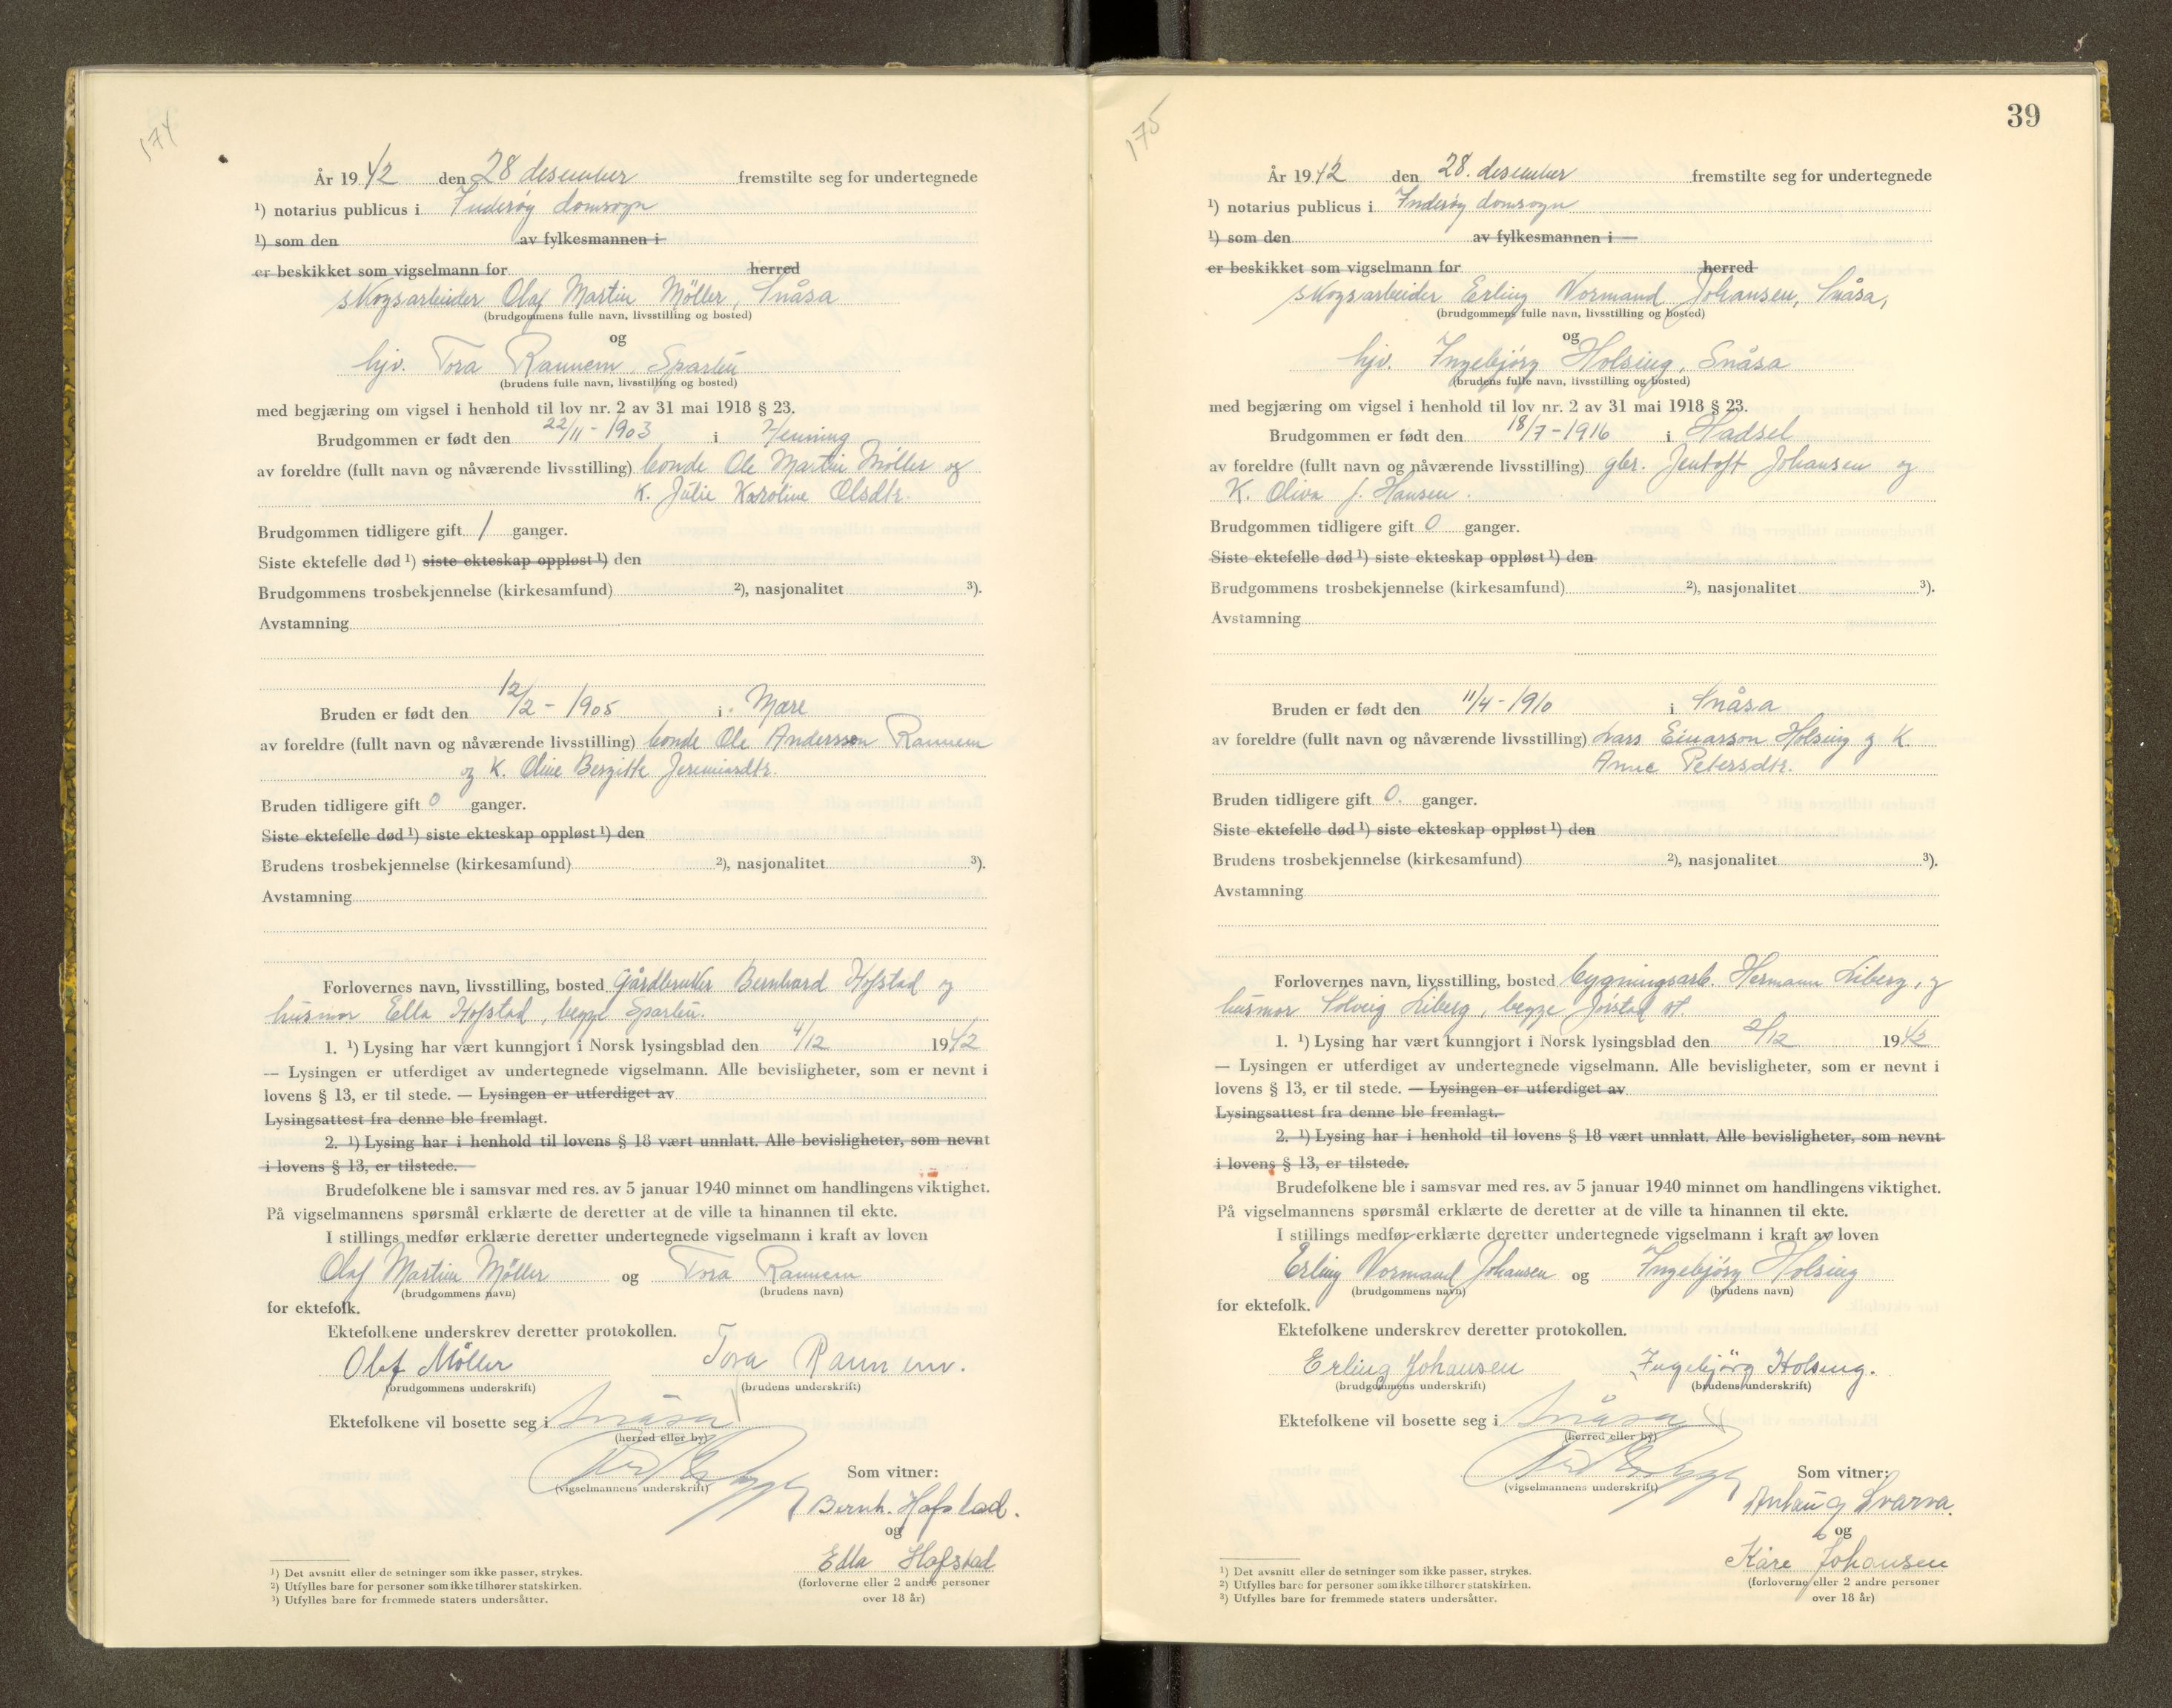 174
År 1942 den 28 desember fremstilte seg for undertegnede
¹) notarius publicus i Inderøy domsogn
¹) som den av fylkesmannen i
er beskikket som vigselmann for herred
skogsarbeider Olaf Martin Möller, Snåsa
(brudgommens fulle navn, livsstilling og bosted)
og
hjv. Tora Rannem Sparbu
(brudens fulle navn, livsstilling og bosted)
med begjæring om vigsel i henhold til lov nr. 2 av 31 mai 1918 § 23.
Brudgommen er født den 22/11 - 1903 i Henning
av foreldre (fullt navn og nåværende livsstilling) bonde Ole Martin Möller og
K. Julie Karoline Olsdtr.
Brudgommen tidligere gift 1 ganger.
Siste ektefelle død ¹) siste ekteskap oppløst ¹) den
Brudgommens trosbekjennelse (kirkesamfund) ²), nasjonalitet ³).
Avstamning
Bruden er født den 12/2 - 1905 i Mære
av foreldre (fullt navn og nåværende livsstilling) bonde Ole Andersson Rannem
og K. Oline Bergitte Jeremiasdtr.
Bruden tidligere gift 0 ganger.
Siste ektefelle død ¹) siste ekteskap oppløst ¹) den
Brudens trosbekjennelse (kirkesamfund) ²), nasjonalitet ³).
Avstamning
Forlovernes navn, livsstilling, bosted Gårdbruker Bernhard Hofstad og
husmor Ella Hofstad, begge Sparbu.
1. ¹) Lysing har vært kunngjort i Norsk lysingsblad den 4/12 1942
— Lysingen er utferdiget av undertegnede vigselmann. Alle bevisligheter, som er nevnt i
lovens § 13, er til stede. — Lysingen er utferdiget av
Lysingsattest fra denne ble fremlagt.
2. ¹) Lysing har i henhold til lovens § 18 vært unnlatt. Alle bevisligheter, som nevnt
i lovens § 13, er tilstede.
Brudefolkene ble i samsvar med res. av 5 januar 1940 minnet om handlingens viktighet.
På vigselmannens spørsmål erklærte de deretter at de ville ta hinannen til ekte.
I stillings medfør erklærte deretter undertegnede vigselmann i kraft av loven
Olaf Martin Möller og Tora Rannem
(brudgommens navn) (brudens navn)
for ektefolk.
Ektefolkene underskrev deretter protokollen.
Olaf Möller Tora Rannem.
(brudgommens underskrift) (brudens underskrift)
Ektefolkene vil bosette seg i Snåsa
(herred eller by)
(vigselmannens underskrift)
Som vitner:
Bernh. Hofstad.
og
Ella Hofstad
(forloverne eller 2 andre personer
over 18 år)
¹) Det avsnitt eller de setninger som ikke passer, strykes.
²) Utfylles bare for personer som ikke tilhører statskirken.
³) Utfylles bare for fremmede staters undersåtter.
175
39
År 1942 den 28. desember fremstilte seg for undertegnede
¹) notarius publicus i Inderøy domsogn
¹) som den av fylkesmannen i
er beskikket som vigselmann for herred
skogsarbeider Erling Normand Johansen, Snåsa,
(brudgommens fulle navn, livsstilling og bosted)
og
hjv. Ingebjörg Holsing, Snåsa
(brudens fulle navn, livsstilling og bosted)
med begjæring om vigsel i henhold til lov nr. 2 av 31 mai 1918 § 23.
Brudgommen er født den 18/7 - 1916 i Hadsel
av foreldre (fullt navn og nåværende livsstilling) gbr. Jentoft Johansen og
K. Oliva J. Hansen.
Brudgommen tidligere gift 0 ganger.
Siste ektefelle død ¹) siste ekteskap oppløst ¹) den
Brudgommens trosbekjennelse (kirkesamfund) ²), nasjonalitet ³).
Avstamning
Bruden er født den 11/4 - 1910 i Snåsa
av foreldre (fullt navn og nåværende livsstilling) Lars Einarson Holsing og K.
Anne Petersdtr.
Bruden tidligere gift 0. ganger.
Siste ektefelle død ¹) siste ekteskap oppløst ¹) den
Brudens trosbekjennelse (kirkesamfund) ²), nasjonalitet ³).
Avstamning
Forlovernes navn, livsstilling, bosted bygningsarb. Hermann Liberg, og
husmor Solveig Liberg, begge Jørstad st.
1. ¹) Lysing har vært kunngjort i Norsk lysingsblad den 2/12 1942
— Lysingen er utferdiget av undertegnede vigselmann. Alle bevisligheter, som er nevnt i
lovens § 13, er til stede. — Lysingen er utferdiget av
Lysingsattest fra denne ble fremlagt.
2. ¹) Lysing har i henhold til lovens § 18 vært unnlatt. Alle bevisligheter, som nevnt
i lovens § 13, er tilstede.
Brudefolkene ble i samsvar med res. av 5 januar 1940 minnet om handlingens viktighet.
På vigselmannens spørsmål erklærte de deretter at de ville ta hinannen til ekte.
I stillings medfør erklærte deretter undertegnede vigselmann i kraft av loven
Erling Normand Johansen og Ingebjörg Holsing
(brudgommens navn) (brudens navn)
for ektefolk.
Ektefolkene underskrev deretter protokollen.
Erling Johansen Ingebjörg Holsing.
(brudgommens underskrift) (brudens underskrift)
Ektefolkene vil bosette seg i Snåsa
(herred eller by)
(vigselmannens underskrift)
Som vitner:
Svarva.
og
Kåre Johansen
(forloverne eller 2 andre personer
over 18 år)
¹) Det avsnitt eller de setninger som ikke passer, strykes.
²) Utfylles bare for personer som ikke tilhører statskirken.
³) Utfylles bare for fremmede staters undersåtter.